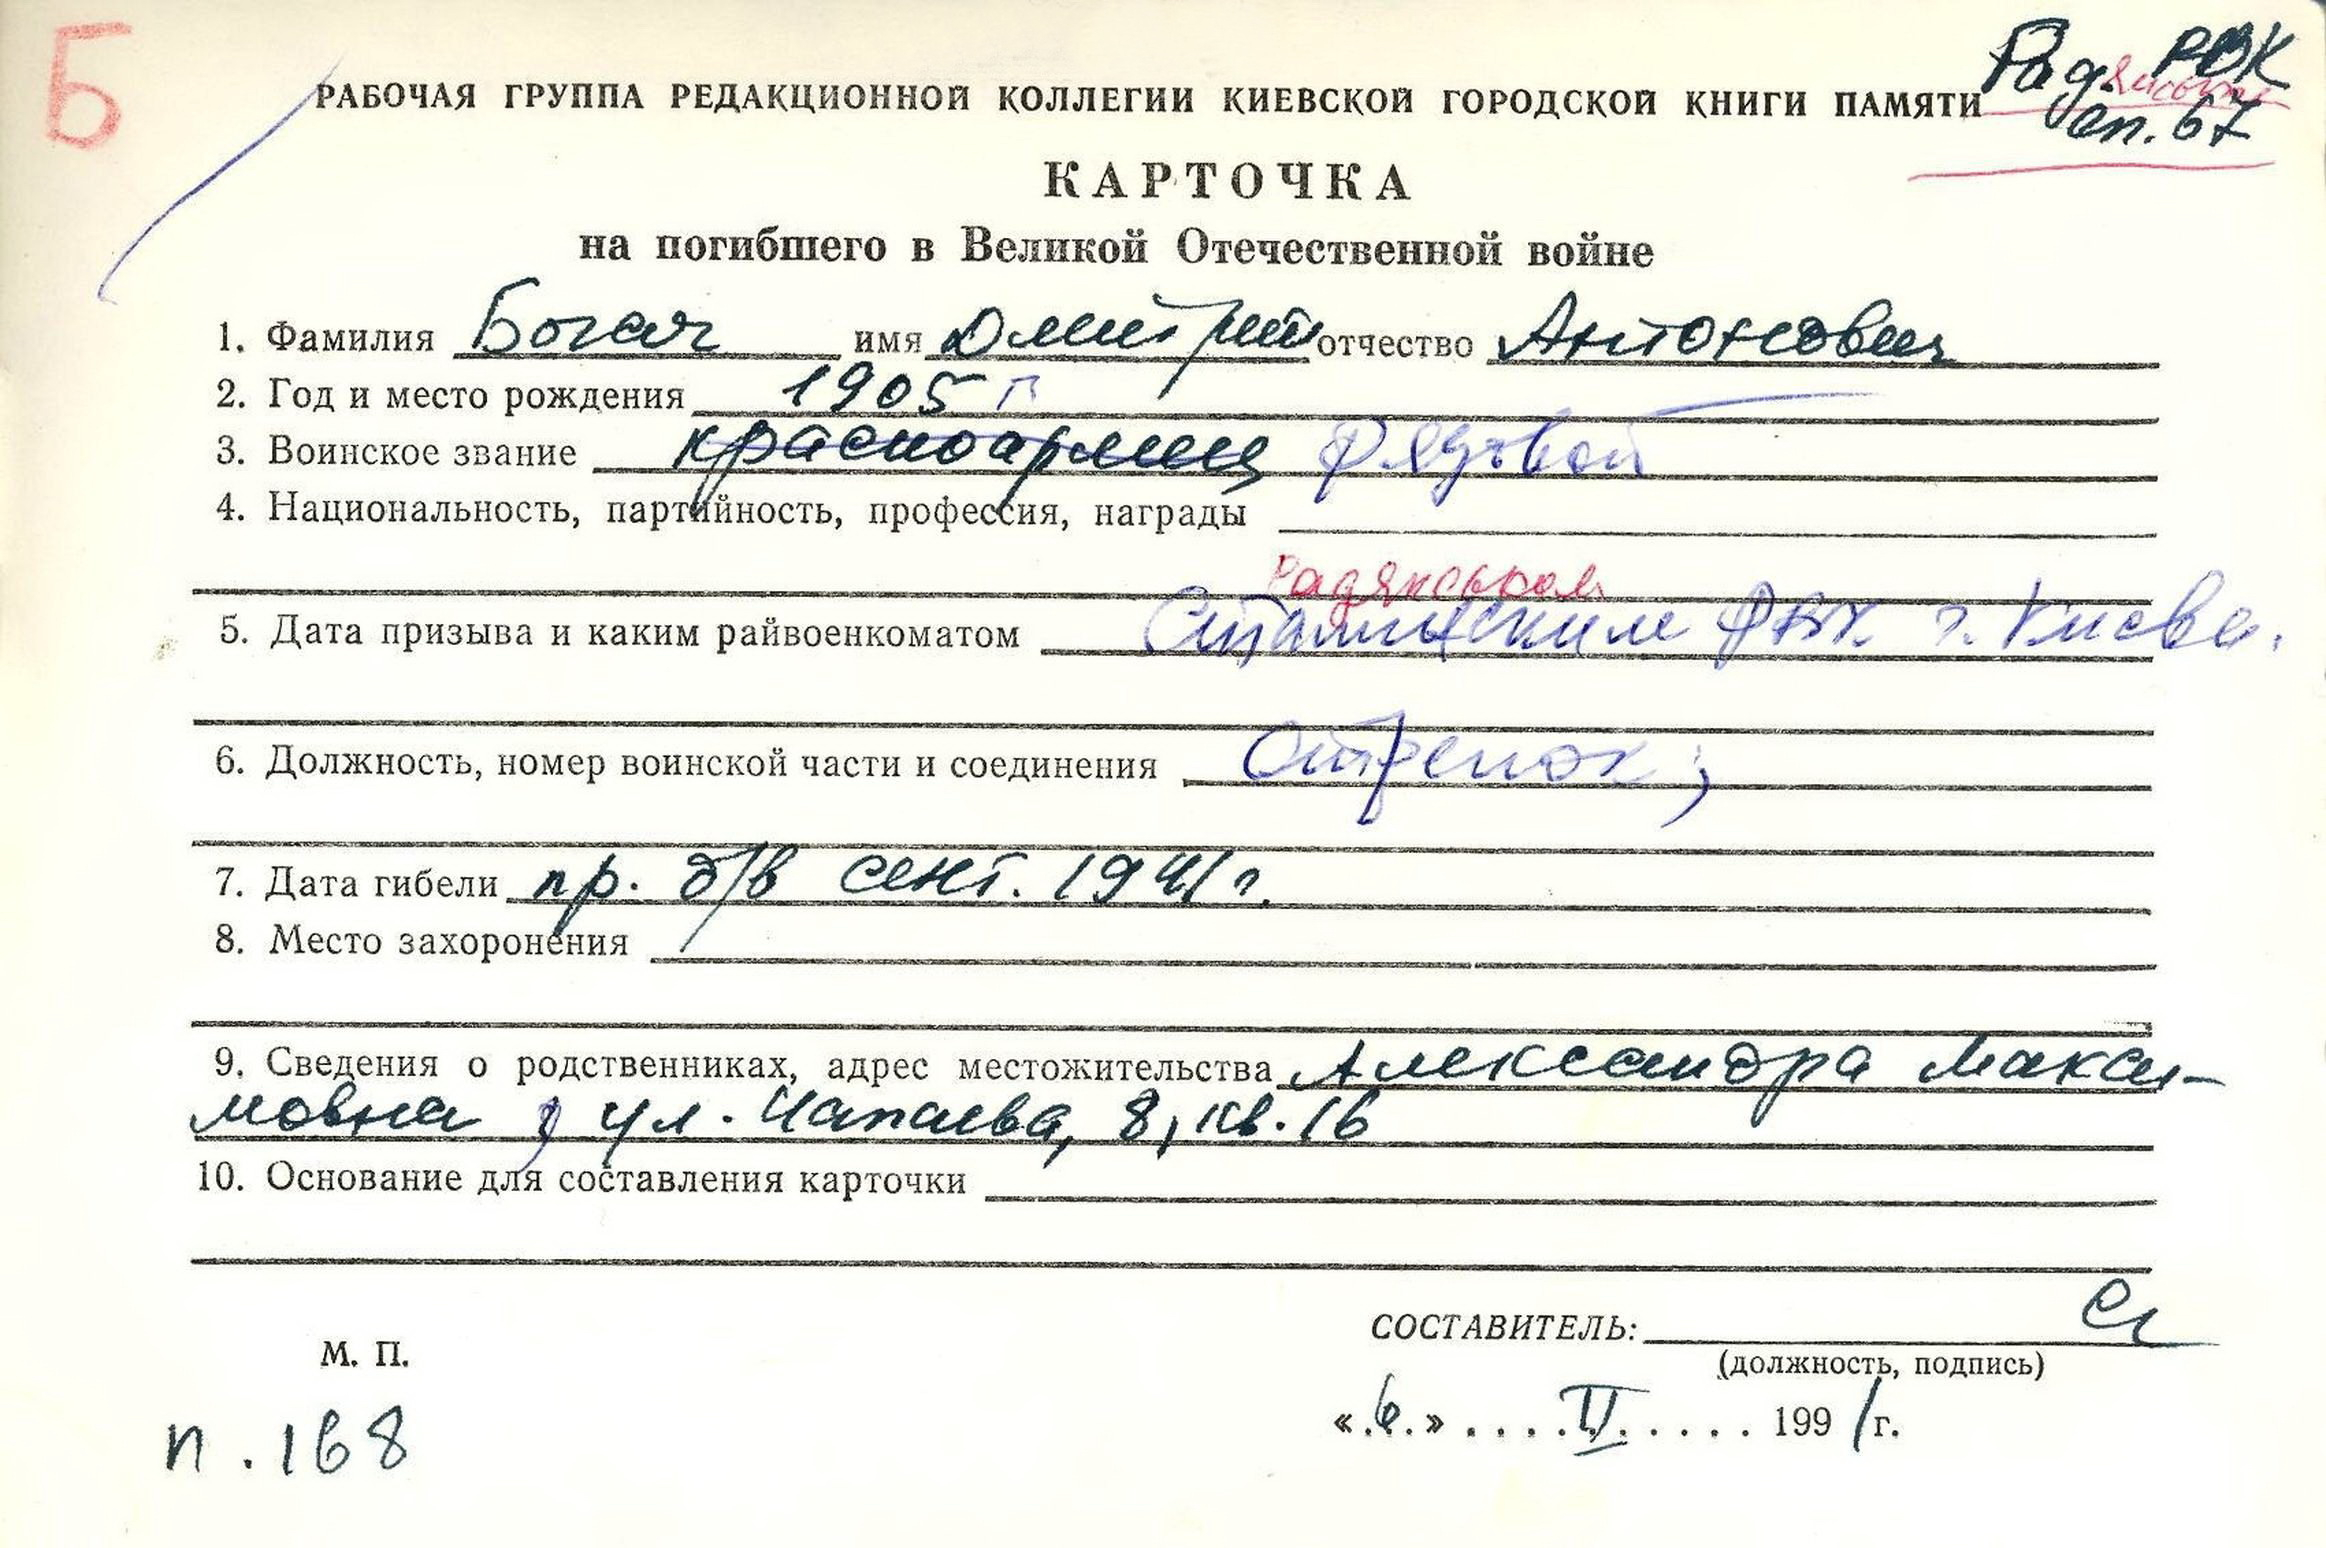 Б
Рад. РВК
оп. 67
РАБОЧАЯ ГРУППА РЕДАКЦИОННОЙ КОЛЛЕГИИ КИЕВСКОЙ ГОРОДСКОЙ КНИГИ ПАМЯТИ
КАРТОЧКА
на погибшего в Великой Отечественной войне
1. Фамилия Богач имя Дмитрий отчество Антонович
2. Год и место рождения 1905 г
3. Воинское звание красноармеец рядовой
4. Национальность, партийность, профессия, награды
Радянським
5. Дата призыва и каким райвоенкоматом Сталинским РВК г. Киева.
6. Должность, номер воинской части и соединения Стрелок;
7. Дата гибели пр. б/в сент. 1941 г.
8. Место захоронения
9. Сведения о родственниках, адрес местожительства Александра Макси-
мовна, ул. Чапаева, 8, кв. 16
10. Основание для составления карточки
СОСТАВИТЕЛЬ:
М. П.
(должность, подпись)
«.6.» .... II ..... 1991 г.
п. 168